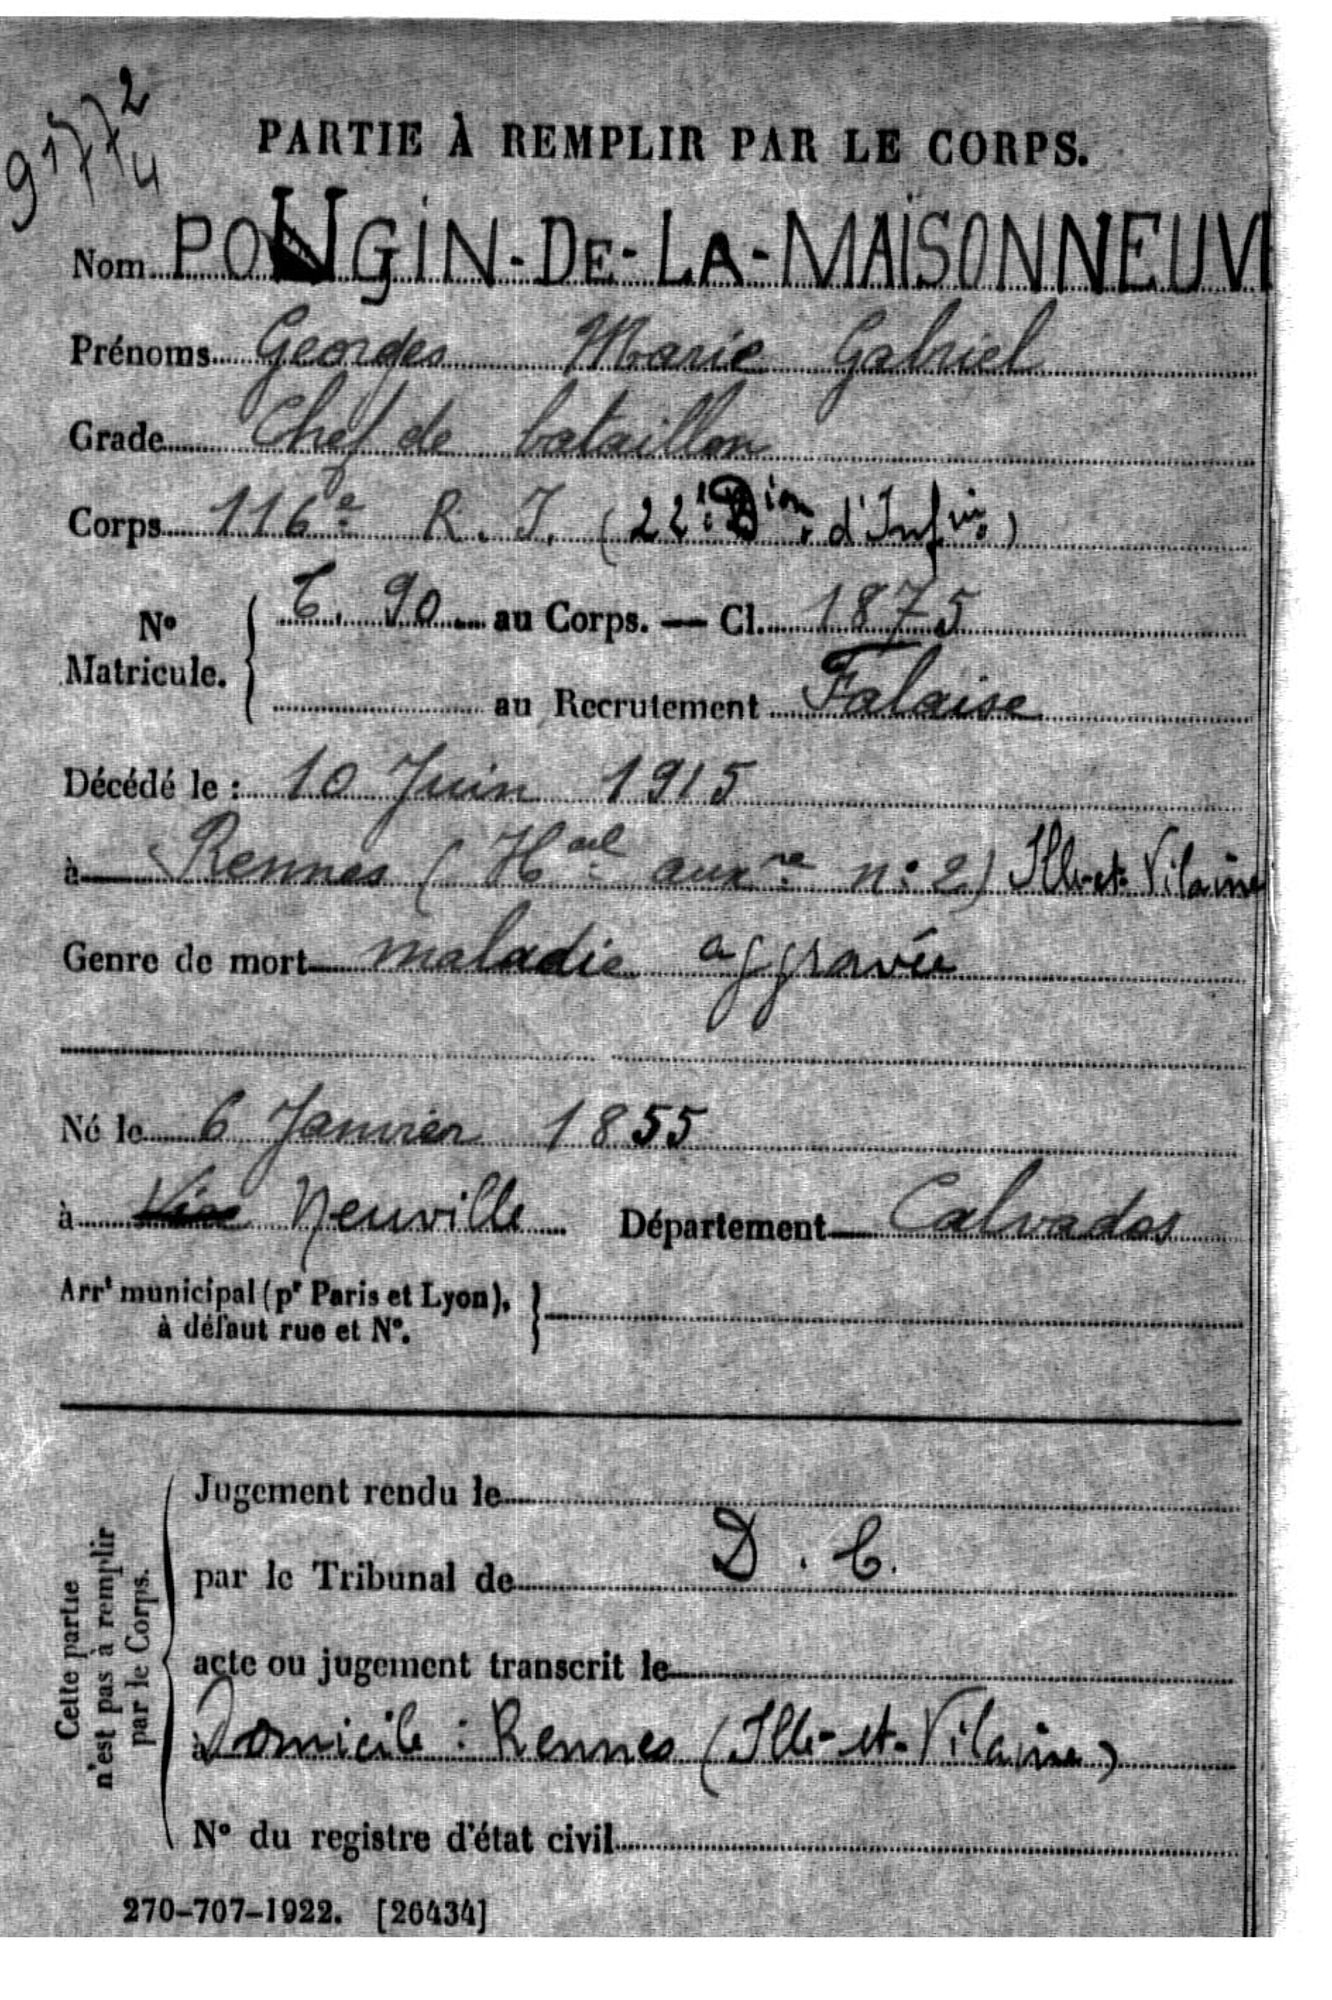 PARTIE À REMPLIR PAR LE CORPS.
Nom POUGIN-DE-LA-MAISONNEUV
Prénoms Georges Marie Gabriel
Grade Chef de bataillon
Corps 116e R. I. (22e Dion d'Infie)
No Matricule. { T. 90 au Corps. — Cl. 1875
au Recrutement Falaise
Décédé le : 10 Juin 1915
à Rennes (Hal auxre no 2) Ille-et-Vilaine
Genre de mort maladie aggravée
Né le 6 Janvier 1855
à Neuville Département Calvados
Arrt municipal (pr Paris et Lyon),
à défaut rue et No.
Cette partie
n'est pas à remplir
par le Corps.
Jugement rendu le
par le Tribunal de D. C.
acte ou jugement transcrit le
à Domicile : Rennes (Ille-et-Vilaine)
No du registre d'état civil
270-707-1922. [26434]